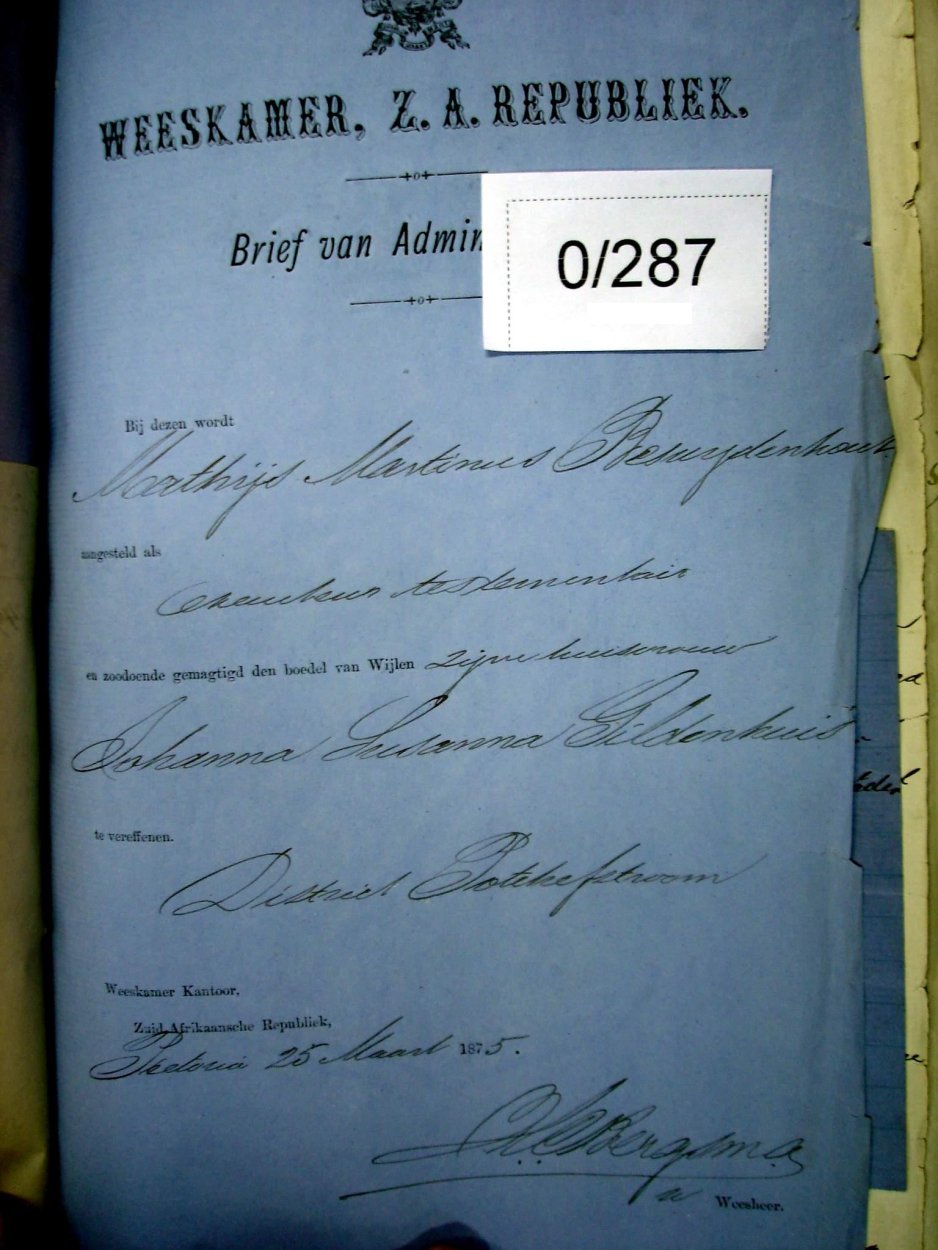 WEESKAMER, Z. A. REPUBLIEK.
Brief van Admin
0/287
Bij dezen wordt
Matthijs Martinus Besuydenhout
aangesteld als
Executeur testamentair
en zoodoende gemagtigd den boedel van Wijlen zijne huisvrouw
Johanna Susanna Gildenhuis
te vereffenen.
District Potchefstroom
Weeskamer Kantoor,
Zuid Afrikaansche Republiek,
Pretoria 25 Maart 1875.
Bergsma
Weesheer.